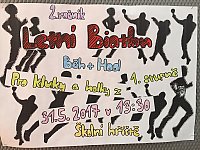 2. ročník
Letní Biatlon
Běh + Hod
Pro kluky a holky z 1. stupně
31.5.2017 v 13:30
Školní hřiště